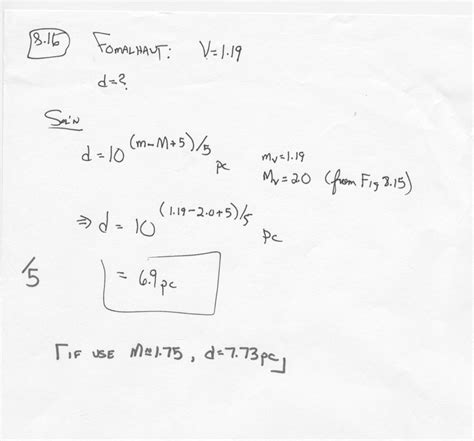 8.16 FOMALHAUT: V=1.19
d=?
Sol'n
d=10^(m-M+5)/5 pc
m_V=1.19
M_V=20 (from Fig 8.15)
⇒ d=10^(1.19-2.0+5)/5 pc
/5
= 6.9 pc
⌈IF USE M≅1.75, d=7.73pc⌋